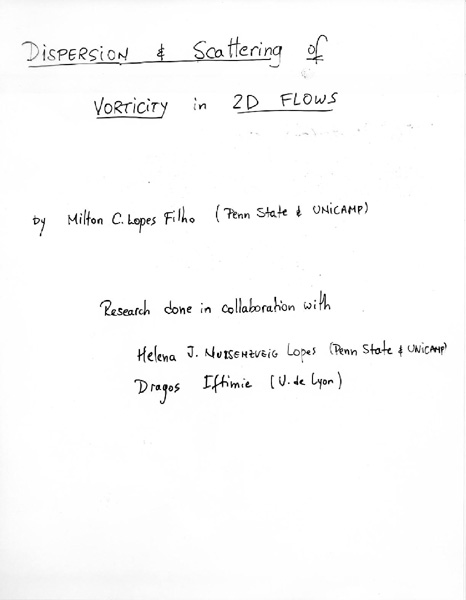 DISPERSION & Scattering of
VORTICITY in 2D FLOWS
by Milton C. Lopes Filho (Penn State & UNICAMP)
Research done in collaboration with
Helena J. NUSSENZVEIG Lopes (Penn State & UNICAMP)
Dragos Iftimie (U. de Lyon)